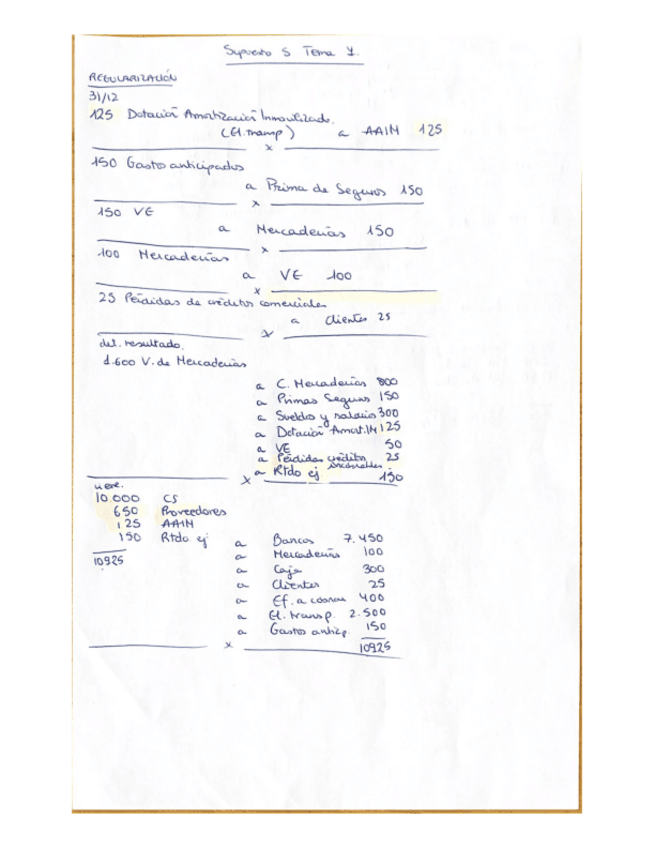 Supuesto 5 Tema 7.
REGULARIZACIÓN
31/12
125 Dotación Amortización Inmovilizado.
(El. transp) a AAIM 125
x
150 Gastos anticipados
a Prima de Seguros 150
x
150 VE
a Mercaderías 150
x
100 Mercaderías
a VE 100
x
25 Pérdidas de créditos comerciales
a Clientes 25
x
del. resultado.
1.600 V. de Mercaderías
a C. Mercaderías 800
a Primas Seguros 150
a Sueldos y salarios 300
a Dotación Amort. IM 125
a VE 50
a Pérdidas créditos 25
incobrables
a Rtdo ej 150
x
cierre.
10.000 CS
650 Proveedores
125 AAIM
150 Rtdo ej
10925
a Bancos 7.450
a Mercaderías 100
a Caja 300
a Clientes 25
a Ef. a cobrar 400
a El. transp. 2.500
a Gastos anticip. 150
10925
x